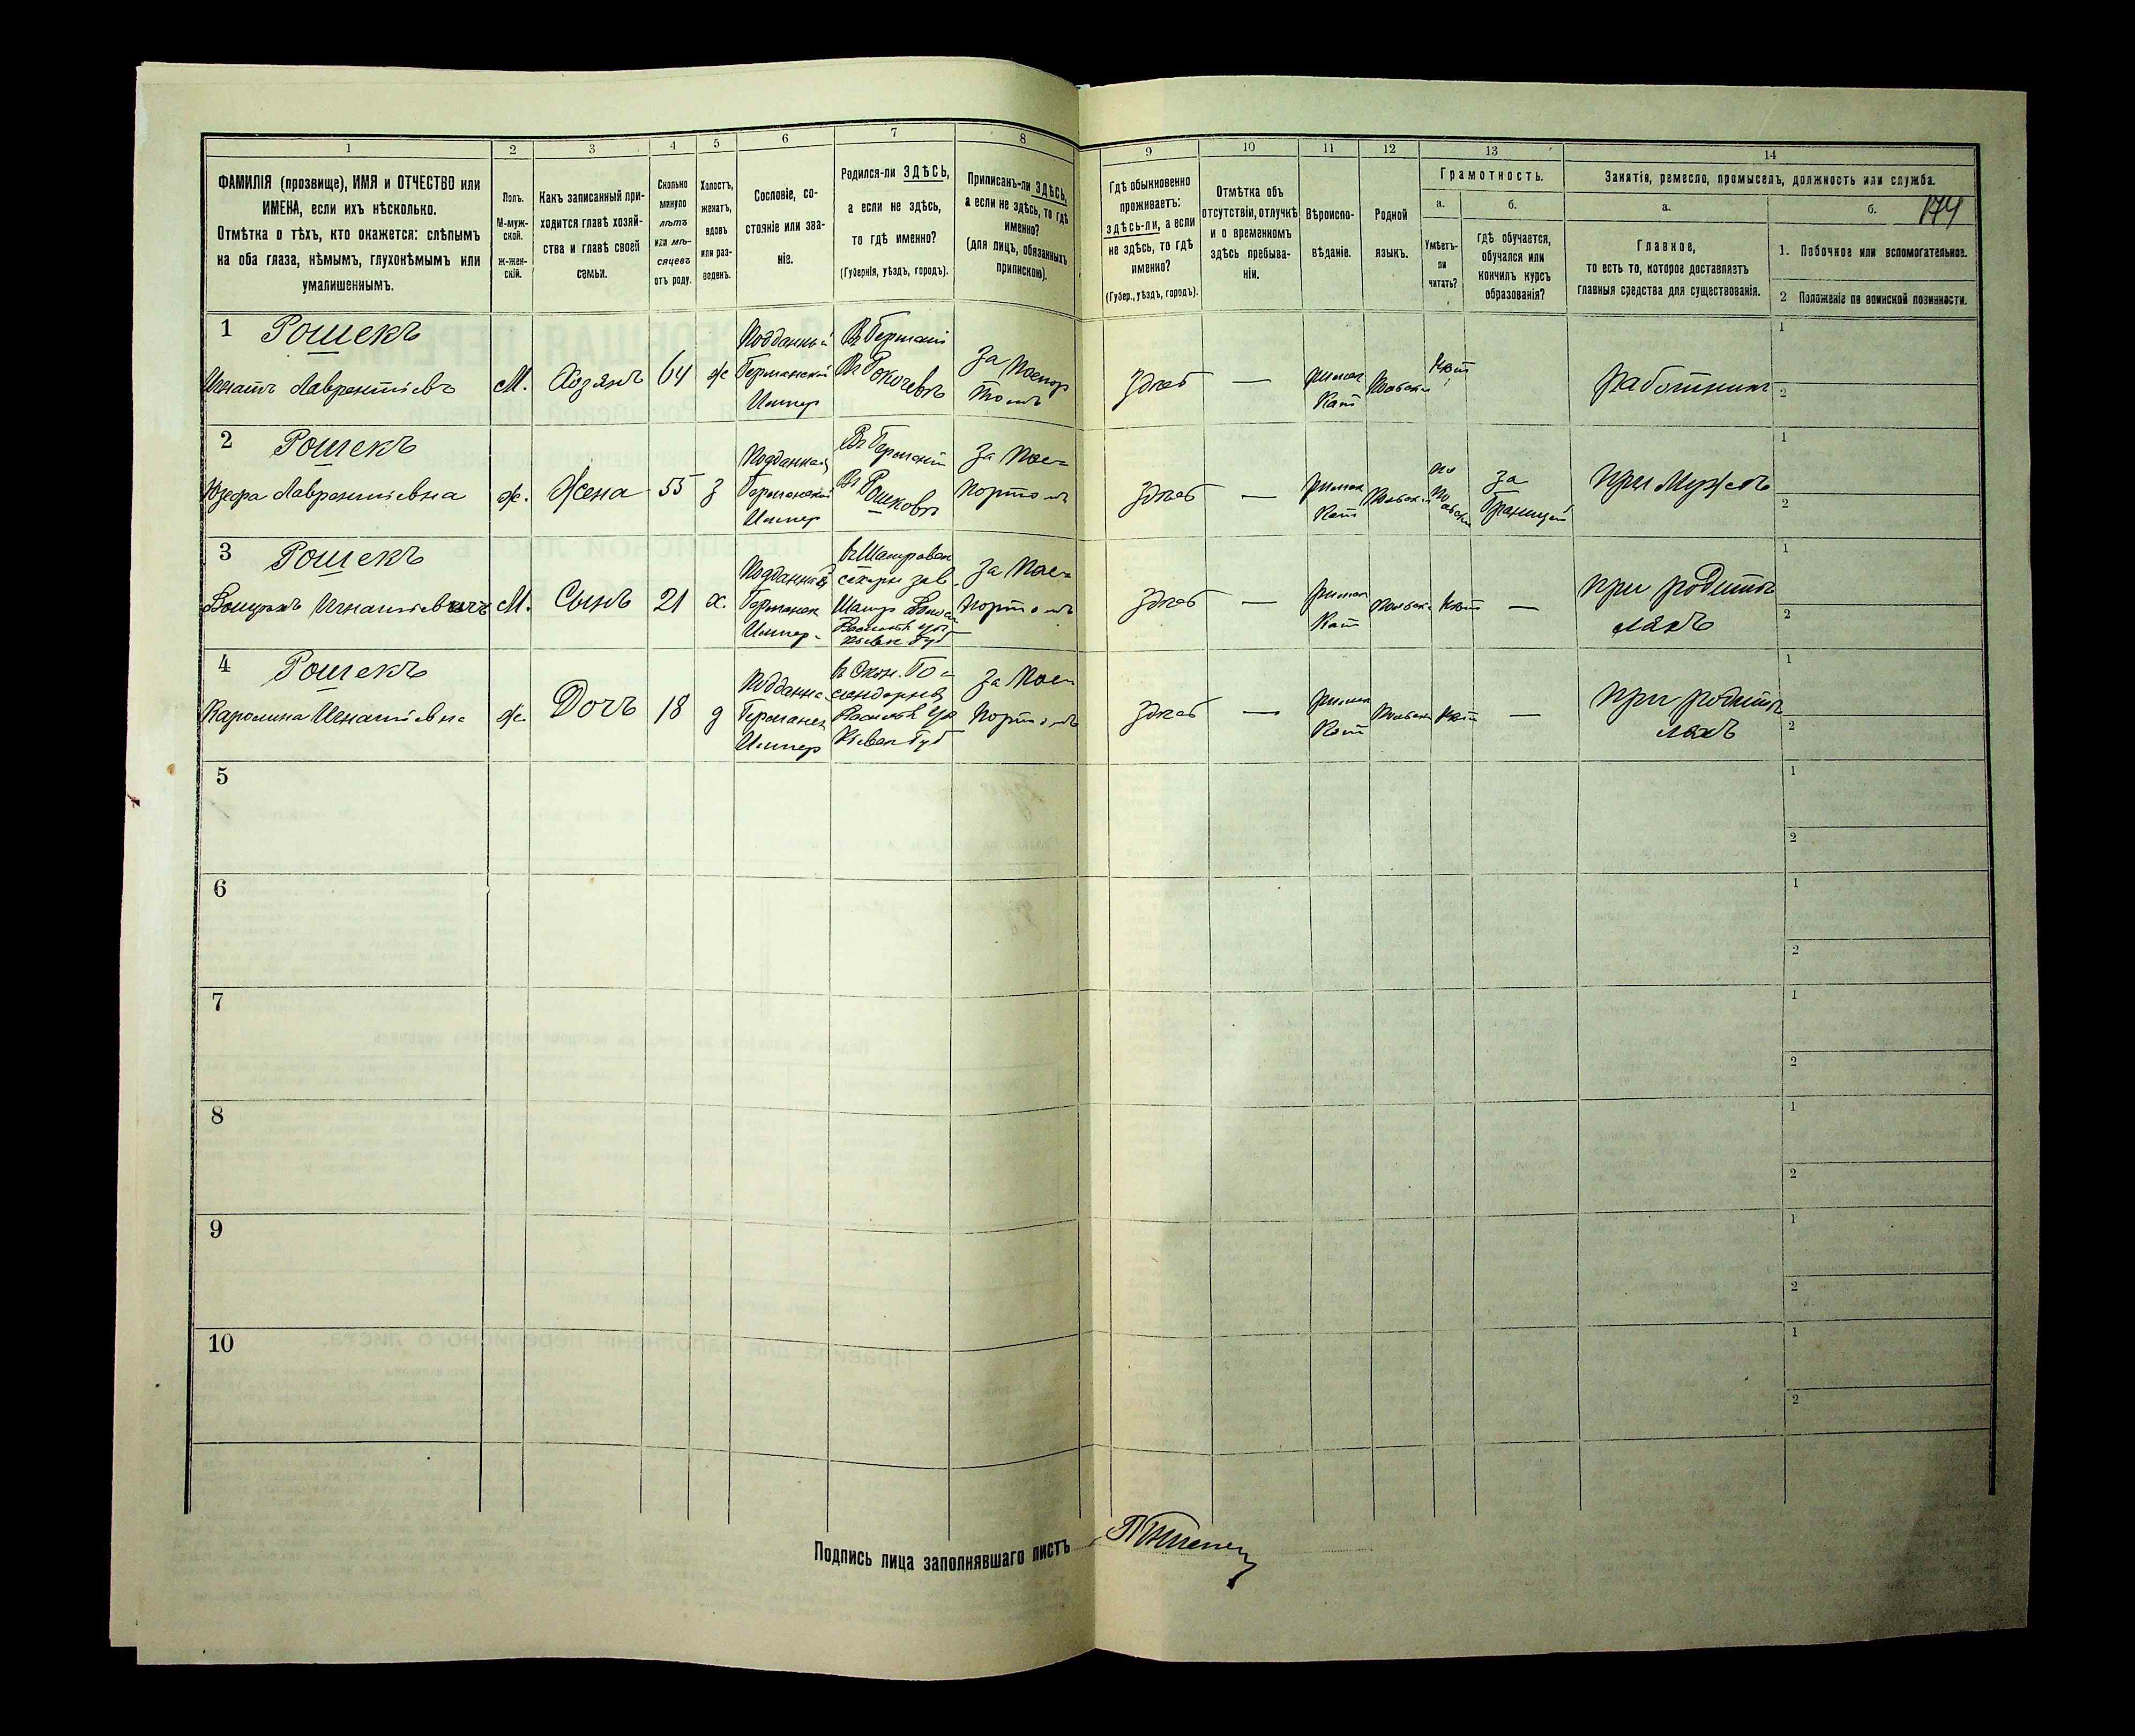 1
2
3
4
5
6
7
8
9
10
11
12
13
14
ФАМИЛІЯ (прозвище), ИМЯ и ОТЧЕСТВО или
ИМЕНА, если ихъ нѣсколько.
Отмѣтка о тѣхъ, кто окажется: слѣпымъ
на оба глаза, нѣмымъ, глухонѣмымъ или
умалишеннымъ.
Полъ.
М-муж-
ской.
Ж-жен-
скій.
Какъ записанный при-
ходится главѣ хозяй-
ства и главѣ своей
семьи.
Сколько
минуло
лѣтъ
или мѣ-
сяцевъ
отъ роду.
Холостъ,
женатъ,
вдовъ
или раз-
веденъ.
Сословіе, со-
стояніе или зва-
ніе.
Родился-ли ЗДѢСЬ,
а если не здѣсь,
то гдѣ именно?
(Губернія, уѣздъ, городъ).
Приписанъ-ли ЗДѢСЬ,
а если не здѣсь, то гдѣ
именно?
(для лицъ, обязанныхъ
припискою).
Гдѣ обыкновенно
проживаетъ:
здѣсь-ли, а если
не здѣсь, то гдѣ
именно?
(Губер., уѣздъ, городъ).
Отмѣтка объ
отсутствіи, отлучкѣ
и о временномъ
здѣсь пребыва-
ніи.
Вѣроиспо-
вѣданіе.
Родной
языкъ.
Грамотность.
а.
Умѣетъ-
ли
читать?
б.
гдѣ обучается,
обучался или
кончилъ курсъ
образованія?
Занятіе, ремесло, промыселъ, должность или служба.
а.
Главное,
то есть то, которое доставляетъ
главныя средства для существованія.
б.
174
1. Побочное или вспомогательное.
2 Положеніе по воинской повинности.
1 Рошекъ
Игнатъ Лаврентіевъ
М.
Хозяинъ
64
ж
Подданный
Германской
Импер
Въ Германіи
За Паспор
томъ
здѣсь
—
римск
Кат
Польск
нѣт
работник
1
2
2 Рошекъ
Юзефа Лаврентіевна
ж.
Жена
55
з
Подданная
Германской
Импер
Въ Германіи
За Пас-
портомъ
здѣсь
—
римск
Кат
Польск
по
Польски
за
Границей
при Мужѣ
1
2
3 Рошекъ
Игнатіевичъ
М.
Сынъ
21
х.
Подданный
Германск
Импер.
За Пас-
портомъ
здѣсь
—
римск
Кат
Польск
нѣт
—
при родите
ляхъ
1
2
4 Рошекъ
Каролина Игнатіевна
ж.
Дочъ
18
д
Подданна
Германск
Импер
Кіевск Губ
За Пас-
портомъ
здѣсь
—
римск
Кат
Польск
нѣт
—
при родите
ляхъ
1
2
5
1
2
6
1
2
7
1
2
8
1
2
9
1
2
10
1
2
Подпись лица заполнявшаго листъ